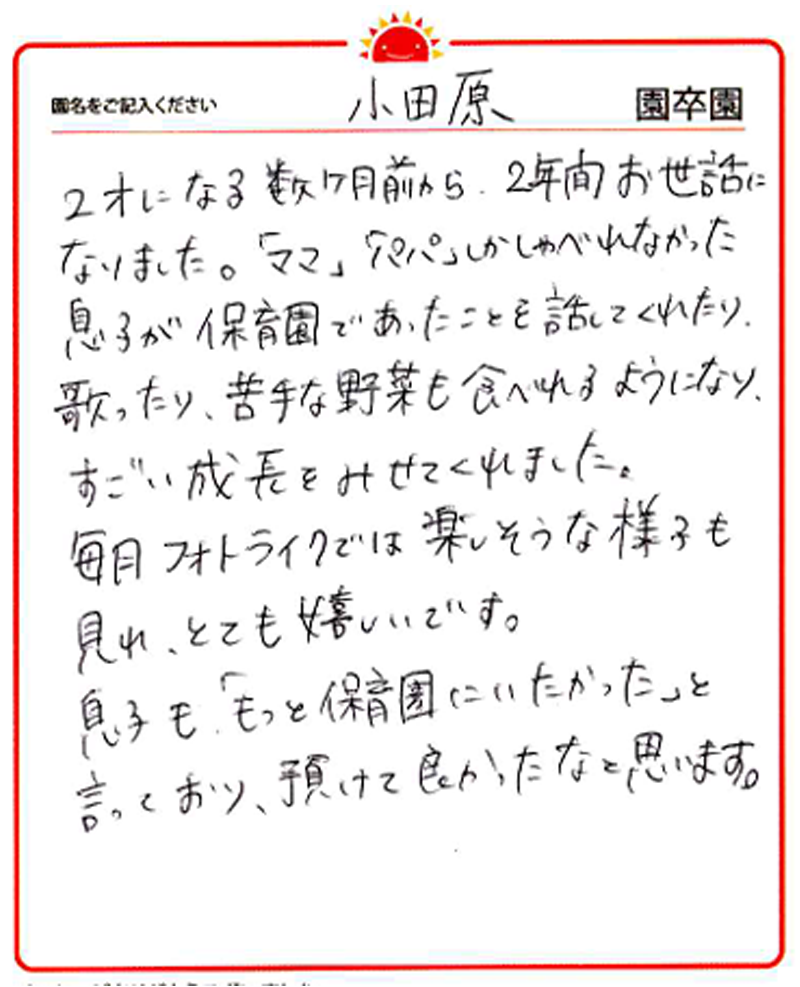 園名をご記入ください 小田原 園卒園
2才になる数ケ月前から、2年間お世話に
なりました。「ママ」「パパ」しかしゃべれなかった
息子が保育園であったことを話してくれたり、
歌ったり、苦手な野菜も食べれるようになり、
すごい成長をみせてくれました。
毎月フォトライクでは楽しそうな様子も
見れ、とても嬉しいです。
息子も、「もっと保育園にいたかった」と
言っており、預けて良かったなと思います。